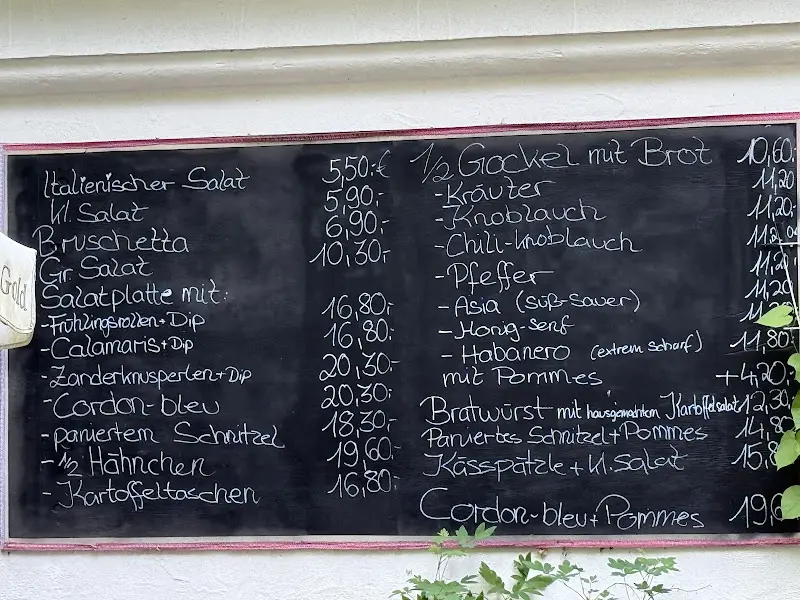 Gold
Italienischer Salat 5,50.-€
Kl. Salat 5,90.-
Bruschetta 6,90.-
Gr. Salat 10,30.-
Salatplatte mit:
-Frühlingsrollen+Dip 16,80.-
-Calamaris+Dip 16,80.-
-Zanderknusperlen+Dip 20,30.-
-Cordon-bleu 20,30.-
-paniertem Schnitzel 18,30.-
-½ Hähnchen 19,60.-
-Kartoffeltaschen 16,80.-
1/2 Gockel mit Brot 10,60.-
-Kräuter 11,20
-Knoblauch 11,20.-
-Chili-Knoblauch 11,20
-Pfeffer 11,20
-Asia (süß-sauer) 11,20
-Honig-senf 11,20
-Habanero (extrem scharf) 11,80.-
mit Pommes +4,20.-
Bratwürst mit hausgemachtem Kartoffelsalat 12,30
Paniertes Schnitzel+Pommes 14,80
Kässpätzle+Kl. Salat 15,8
Cordon-bleu+Pommes 19,6